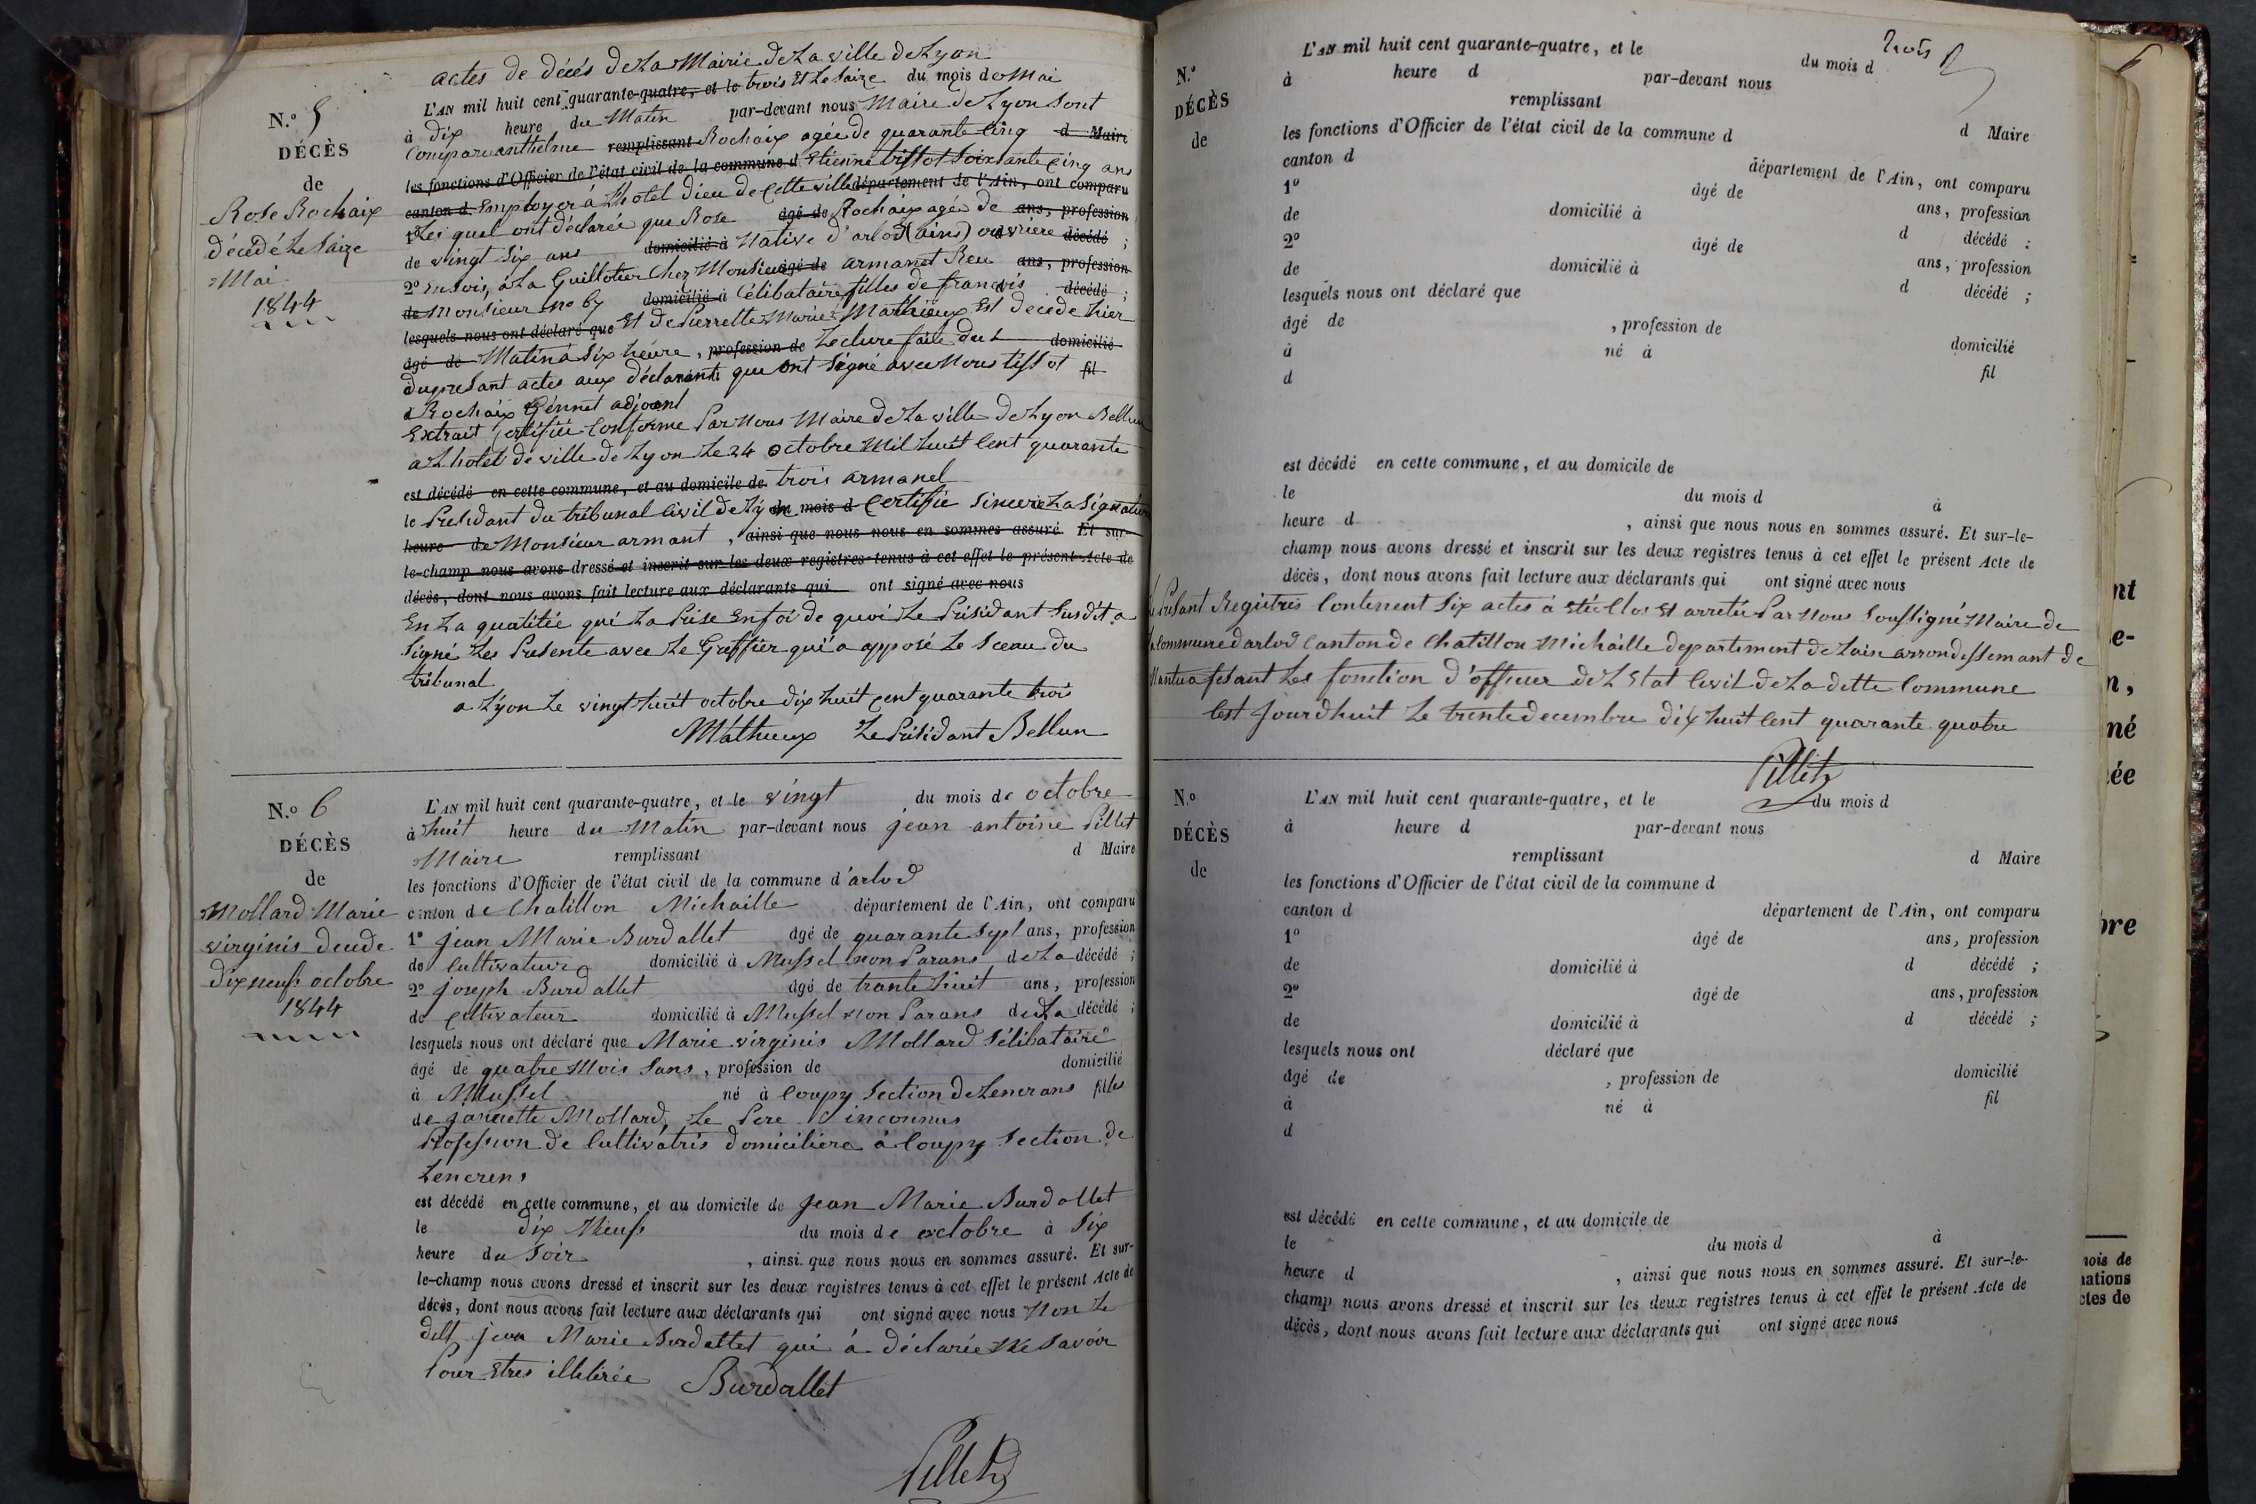 actes de décés de La Mairie de La ville de Lyon
N.o 5
DÉCÈS
de
Rose Rochaix
décédé Le Saize
Mai
1844
L'AN mil huit cent quarante-quatre, et le trois Et Le Saize du mois de Mai
à dix heure du Matin par-devant nous Maire de Lyon Sont
remplissant Rochaix agée de quarante Cinq d Maire
les fonctions d'Officier de l'état civil de la commune d Etienne tissot Soixante Cinq ans
canton d Employer á L'hotel dieu de Cette ville département de l'Ain, ont comparu
1o Les quel ont déclarée que Rose âgé de Rochaix agée de ans, profession
de vingt Six ans domicilié à Native d'arlod (ains) ouvrière décédé ;
2o En Sois, à La Guillotier Chez Monsieur âgé de armanet Reu ans, profession
de Monsieur no 67 domicilié à Célibataire filles de francois décédé ;
lesquels nous ont déclaré que Et de Pierrette Marie Mathieux Est décédé hier
âgé de Matin á Six heure, profession de Lecture faite du domicilié
du presant actes aux déclarants qui ont Signé avec Nous tissot fil
Rochaix Génnet adjoent
Extrait Certifiée Conforme Par Nous Maire de La ville de Lyon Bellun
a L'hotel de ville de Lyon Le 24 octobre Mil huit Cent quarante
est décédé en cette commune, et au domicile de trois armanel
le Présidant du tribunal Civil de Lyon du mois d Certifie Sincere La Signature
heure de Monsieur armant, ainsi que nous nous en sommes assuré. Et sur-
le-champ nous avons dressé et inscrit sur les deux registres tenus à cet effet le présent Acte de
décès, dont nous avons fait lecture aux déclarants qui ont signé avec nous
En La qualitée qui La Prise En foi de quoi Le Présidant Susdit a
Signé Les Presente avec Le Greffier qui a apposé Le Sceau du
tribunal
a Lyon Le vingt huit octobre dix huit Cent quarante trois
Mathieux Le Présidant Bellun
N.o 6
DÉCÈS
de
Mollard Marie
virginis
dix neuf octobre
1844
L'AN mil huit cent quarante-quatre, et le vingt du mois de octobre
à huit heure du Matin par-devant nous jean antoine Pillet
Maire remplissant d Maire
les fonctions d'Officier de l'état civil de la commune d'arlod
canton de Chatillon Michaille département de l'Ain, ont comparu
1o jean Marie Burdallet âgé de quarante Sept ans, profession
de Cultivateur domicilié à Mussel non Parans de La décédé ;
2o joseph Burdallet âgé de trante huit ans, profession
de Cultivateur domicilié à Mussel non Parans de La décédé ;
lesquels nous ont déclaré que Marie virginis Mollard Sélibataire
âgé de quatre Mois Sans, profession de domicilié
à Mussel né à Coupy Section de Lencrans filles
de janette Mollard, Le Pere inconnus
Profession de Cultivatris domiciliere á Coupy Section de
Lencrens
est décédé en cette commune, et au domicile de Jean Marie Burdallet
le dix Neuf du mois de octobre à Six
heure du Soir, ainsi que nous nous en sommes assuré. Et sur-
le-champ nous avons dressé et inscrit sur les deux registres tenus à cet effet le présent Acte de
décès, dont nous avons fait lecture aux déclarants qui ont signé avec nous Non Le
dilt jean Marie Burdallet qui á déclarée Ne Savoir
Pour Etres illiterée Burdallet
Pillet
trois
N.o
DÉCÈS
de
L'AN mil huit cent quarante-quatre, et le du mois d
à heure d par-devant nous
remplissant d Maire
les fonctions d'Officier de l'état civil de la commune d
canton d département de l'Ain, ont comparu
1o âgé de ans, profession
de domicilié à d décédé :
2o âgé de ans, profession
de domicilié à d décédé ;
lesquels nous ont déclaré que
âgé de , profession de domicilié
à né à fil
d
est décédé en cette commune, et au domicile de
le du mois d à
heure d , ainsi que nous nous en sommes assuré. Et sur-le-
champ nous avons dressé et inscrit sur les deux registres tenus à cet effet le présent Acte de
décès, dont nous avons fait lecture aux déclarants qui ont signé avec nous
Le Présant Registres Contenent Six actes á Eté Clos Et arretée Par Nous Soussigné Maire de
La Commune d'arlod Canton de Chatillon Michaille departement de Lain arrondissemant de
Nantua fesant Les fonction d'officier de L'Etat Civil de La ditte Commune
Cest jourdhuit Le trente decembre dix huit Cent quarante quatre
Pillet
N.o
DÉCÈS
de
L'AN mil huit cent quarante-quatre, et le du mois d
à heure d par-devant nous
remplissant d Maire
les fonctions d'Officier de l'état civil de la commune d
canton d département de l'Ain, ont comparu
1o âgé de ans, profession
de domicilié à d décédé ;
2o âgé de ans, profession
de domicilié à d décédé ;
lesquels nous ont déclaré que
âgé de , profession de domicilié
à né à fil
d
est décédé en cette commune, et au domicile de
le du mois d à
heure d , ainsi que nous nous en sommes assuré. Et sur-le-
champ nous avons dressé et inscrit sur les deux registres tenus à cet effet le présent Acte de
décès, dont nous avons fait lecture aux déclarants qui ont signé avec nous